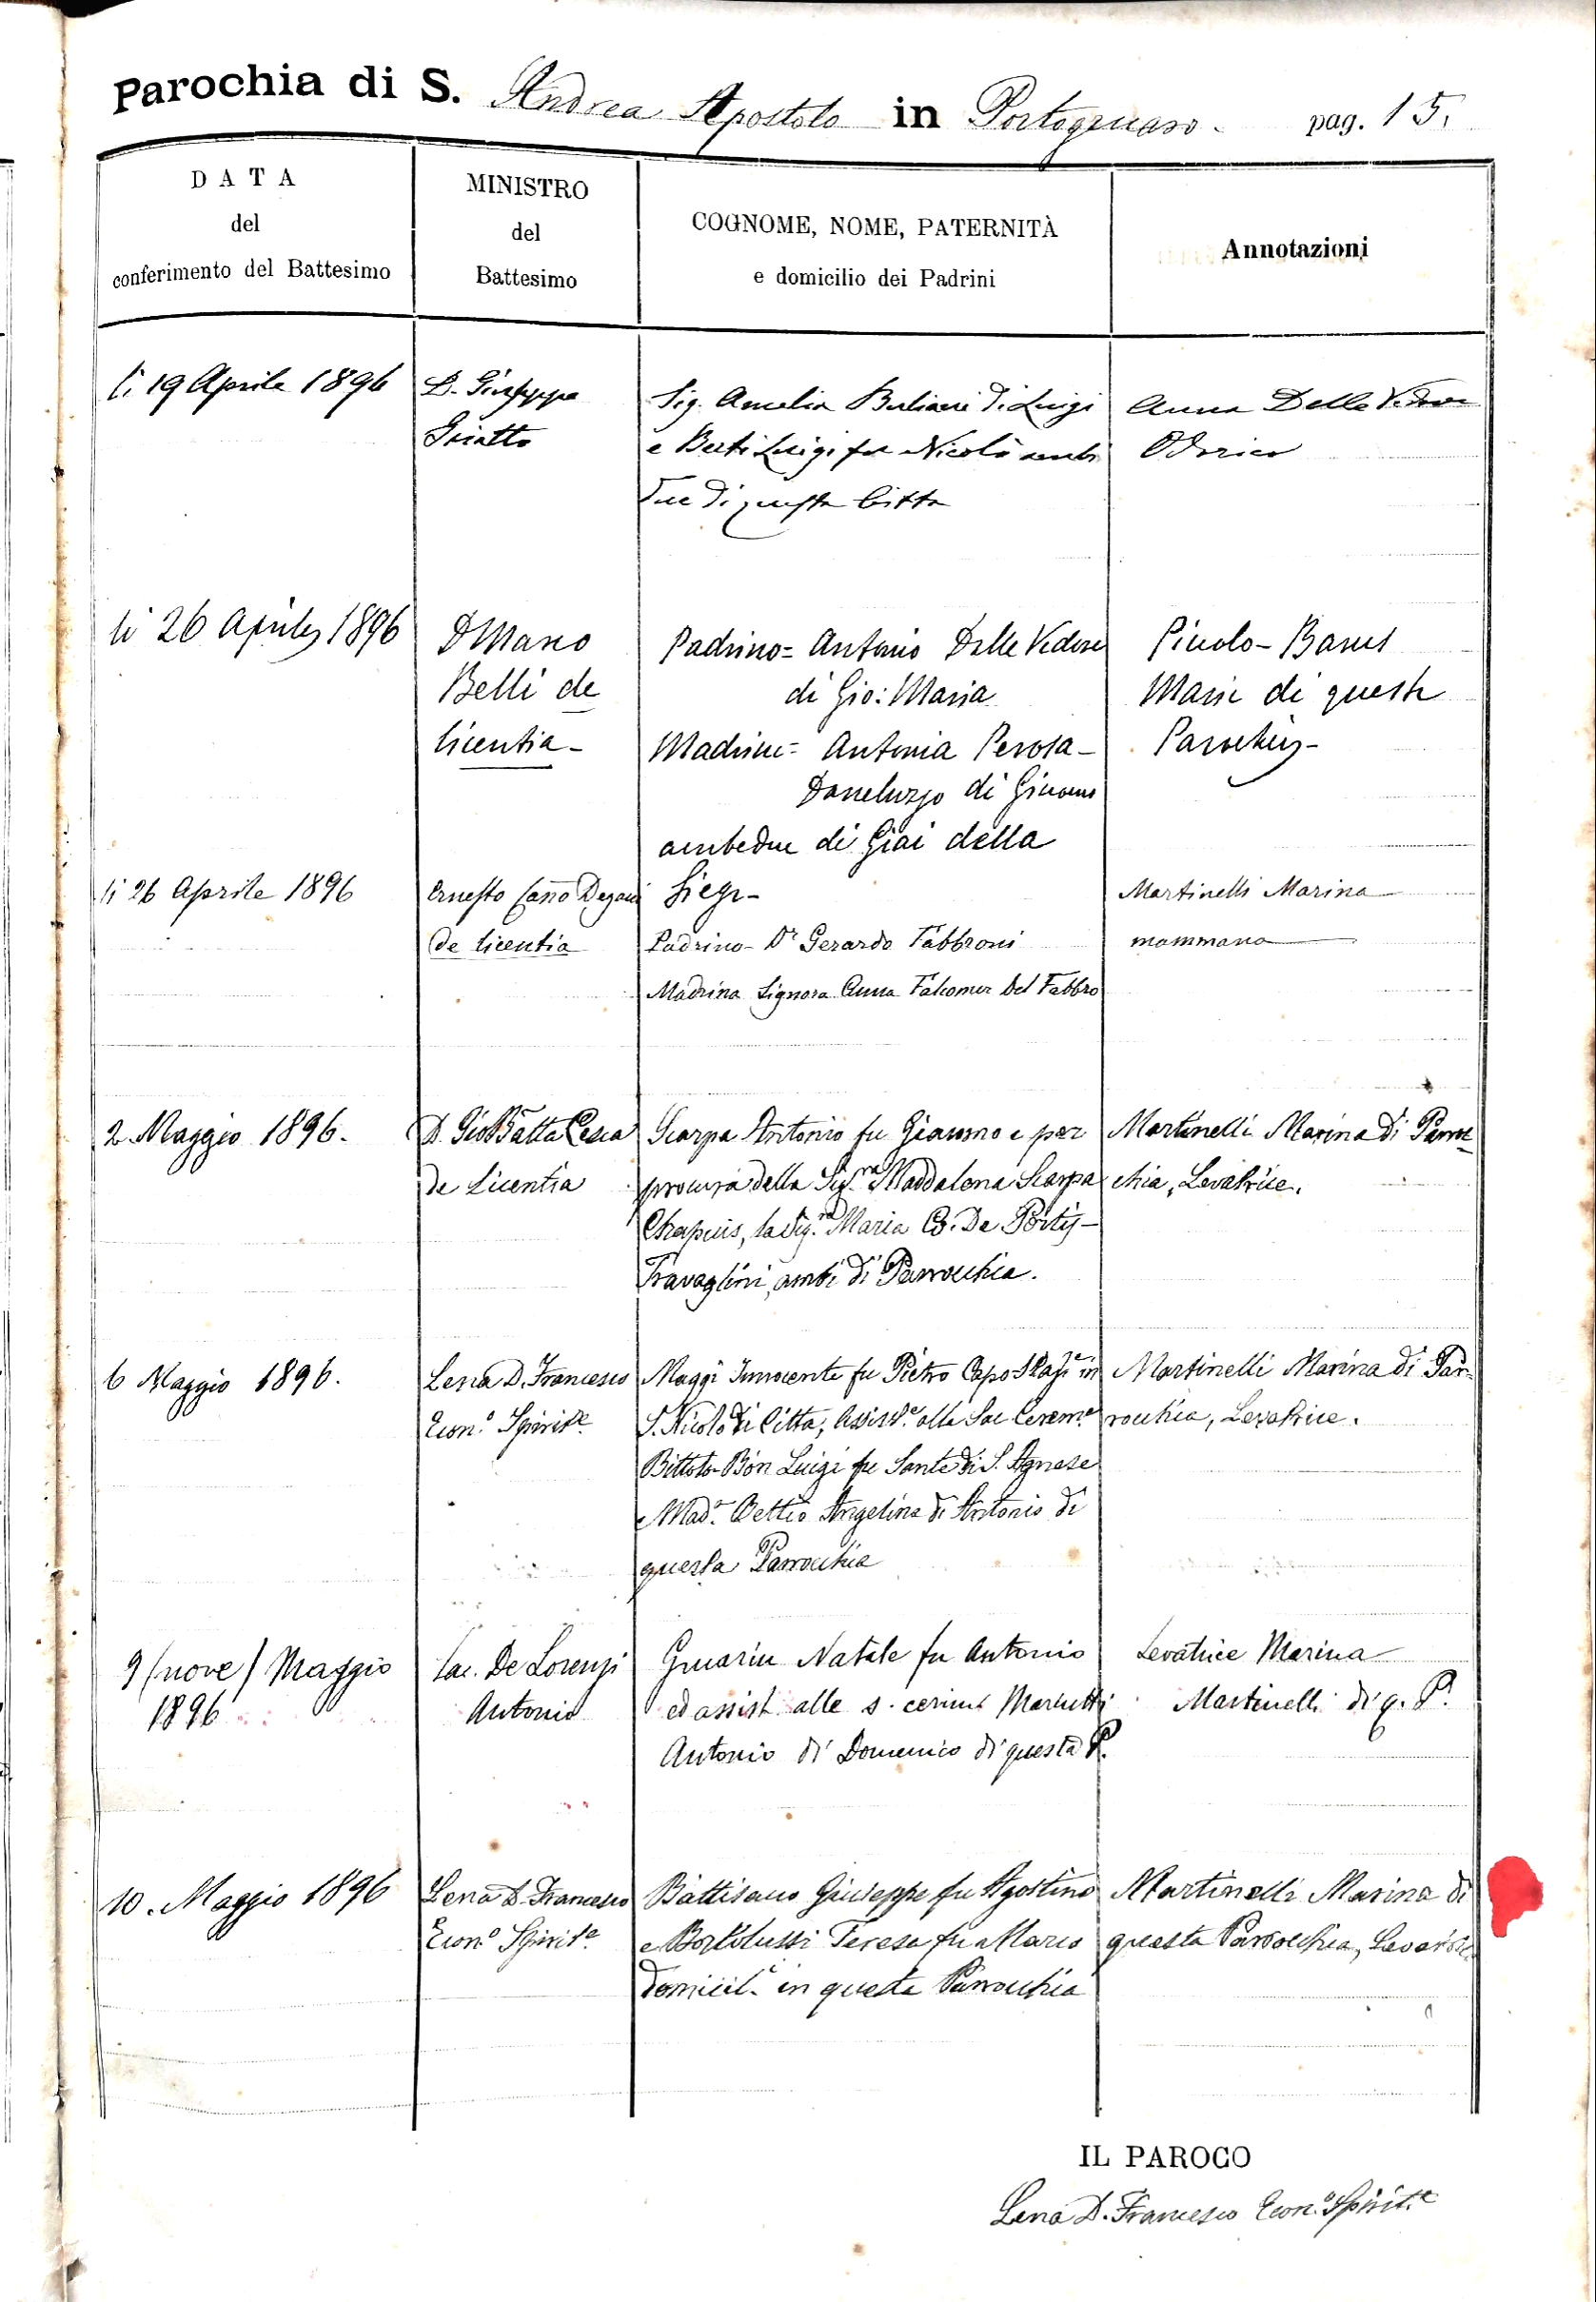 Parochia di S. Andrea Apostolo in Portogruaro. pag. 15.
DATA
del
conferimento del Battesimo
MINISTRO
del
Battesimo
COGNOME, NOME, PATERNITÀ
e domicilio dei Padrini
Annotazioni
li 19 Aprile 1896
D. Giuseppe
Sig. Amelia di Luigi
e Berti Luigi fu Nicolò ambi
due di questa Città
Anna Delle Vedove
Odorico
li 26 Aprile 1896
Belli de
licentia-
Padrino= Antonio Delle Vedove
di Gio: Maria
Madrina= Antonia Perosa-
Daneluzzo di Giacomo
ambedue di Giai della
Siega-
Piccolo-
Maria di questa
Parochia-
li 26 Aprile 1896
Ernesto Cano Degani
de licentia
Padrino- Dr Gerardo Fabbroni
Madrina Signora Anna Falcomer Del Fabbro
Martinelli Marina
mammana
2. Maggio 1896.
D. Gio Batta Cesca
de Licentia
Scarpa Antonio fu Giacomo e per
procura della Sig.ra Maddalena Scarpa
Chapuis, la Sig.ra Maria Co. De Portis-
Travaglini, ambi di Parrocchia.
Martinelli Marina di Parroc
chia, Levatrice.
6 Maggio 1896.
Lena D. Francesco
Econ.o Spirit.e
Maggi Innocente fu Pietro Capo Staz.e in
S. Nicolò di Città, Assist.e alla Sac Cerem.e
Bittolo-Bon Luigi fu Sante di S. Agnese
Mad.a Bettio Angelina di Antonio di
questa Parrocchia
Martinelli Marina di Par-
rocchia, Levatrice.
9 (nove) Maggio
1896
Sac. De Lorenzi
Antonio
Natale fu Antonio
ed assist. alle s. cerim.
Antonio di Domenico di questa P.
Levatrice Marina
Martinelli di q. P.
10. Maggio 1896
Lena D. Francesco
Econ.o Spirit.e
Battisano Giuseppe fu Agostino
e Bortolussi Teresa fu Marco
domicil.i in questa Parrocchia
Martinelli Marina di
questa Parrocchia, Levatrice
IL PAROCO
Lena D. Francesco Econ.o Spirit.e